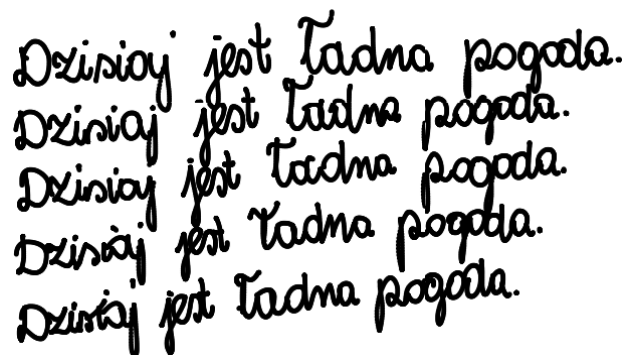 Dzisiaj jest ładna pogoda.
Dzisiaj jest ładna pogoda.
Dzisiaj jest ładna pogoda.
Dzisiaj jest ładna pogoda.
Dzisiaj jest ładna pogoda.